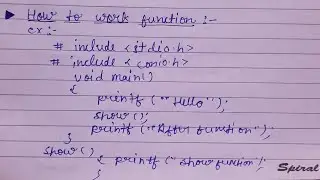 ▶ How to work function :-
ex:-
# include <stdio.h>
# include <conio.h>
void main()
{
printf ("Hello");
show();
printf ("After function");
}
show() { printf ("show function");
}
Spiral